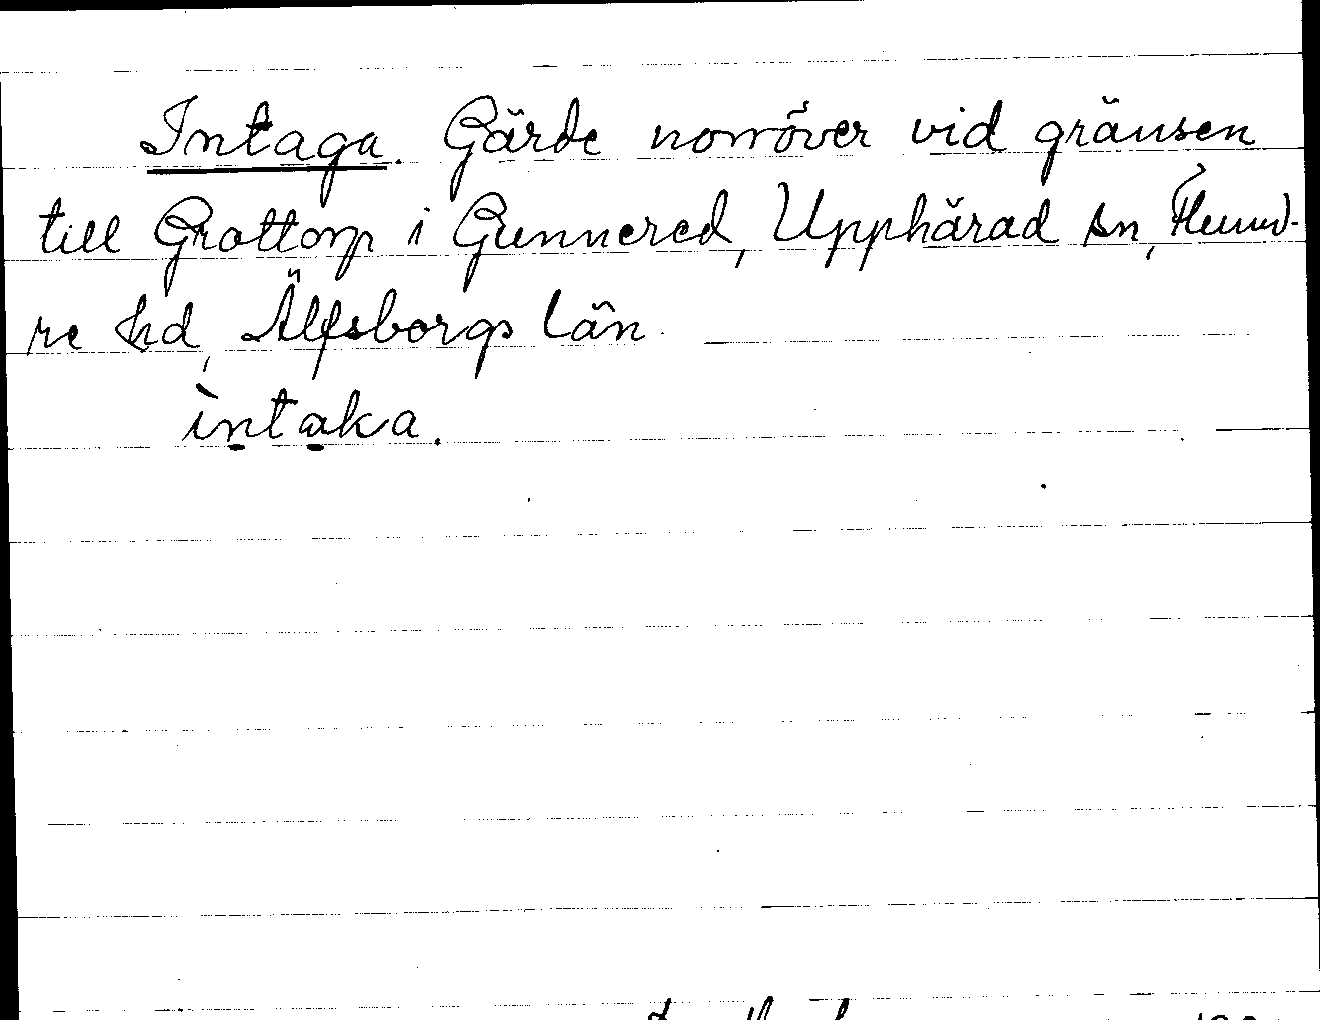 Intaga. Gärde norröver vid gränsen
till Grottorp i Gunnered, Upphärad sn, Flund-
re hd, Älfsborgs län.
ìntaka.